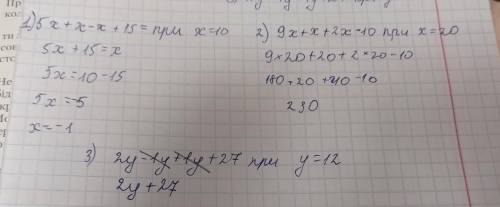 1) 5x + x - x + 15 = при x=10
5x + 15 = x
5x = 10 - 15
5x = -5
x = -1
2) 9x + x + 2x - 10 при x=20
9×20 + 20 + 2×20 - 10
180 + 20 + 40 - 10
230
3) 2y - 1y + 1y + 27 при y = 12
2y + 27